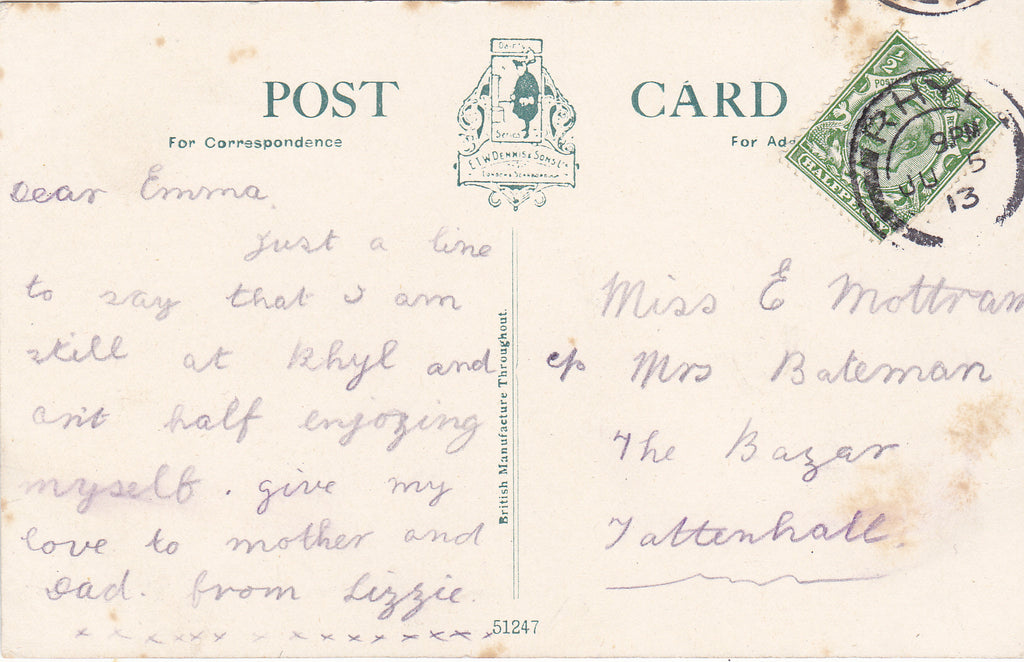 POST CARD
For Correspondence
For Ad
Dainty
Series
E.T.W. DENNIS & SONS Ld
LONDON & SCARBOROUGH
½
POST
HALFPENNY
RHYL
9 PM
JU 5
13
Dear Emma.
Just a line
to say that I am
still at Rhyl and
ant half enjoying
myself. give my
love to mother and
Dad. from Lizzie.
x x x x x x x x x x x x x x
British Manufacture Throughout.
51247
Miss E Mottram
c/o Mrs Bateman
The Bazar
Tattenhall.